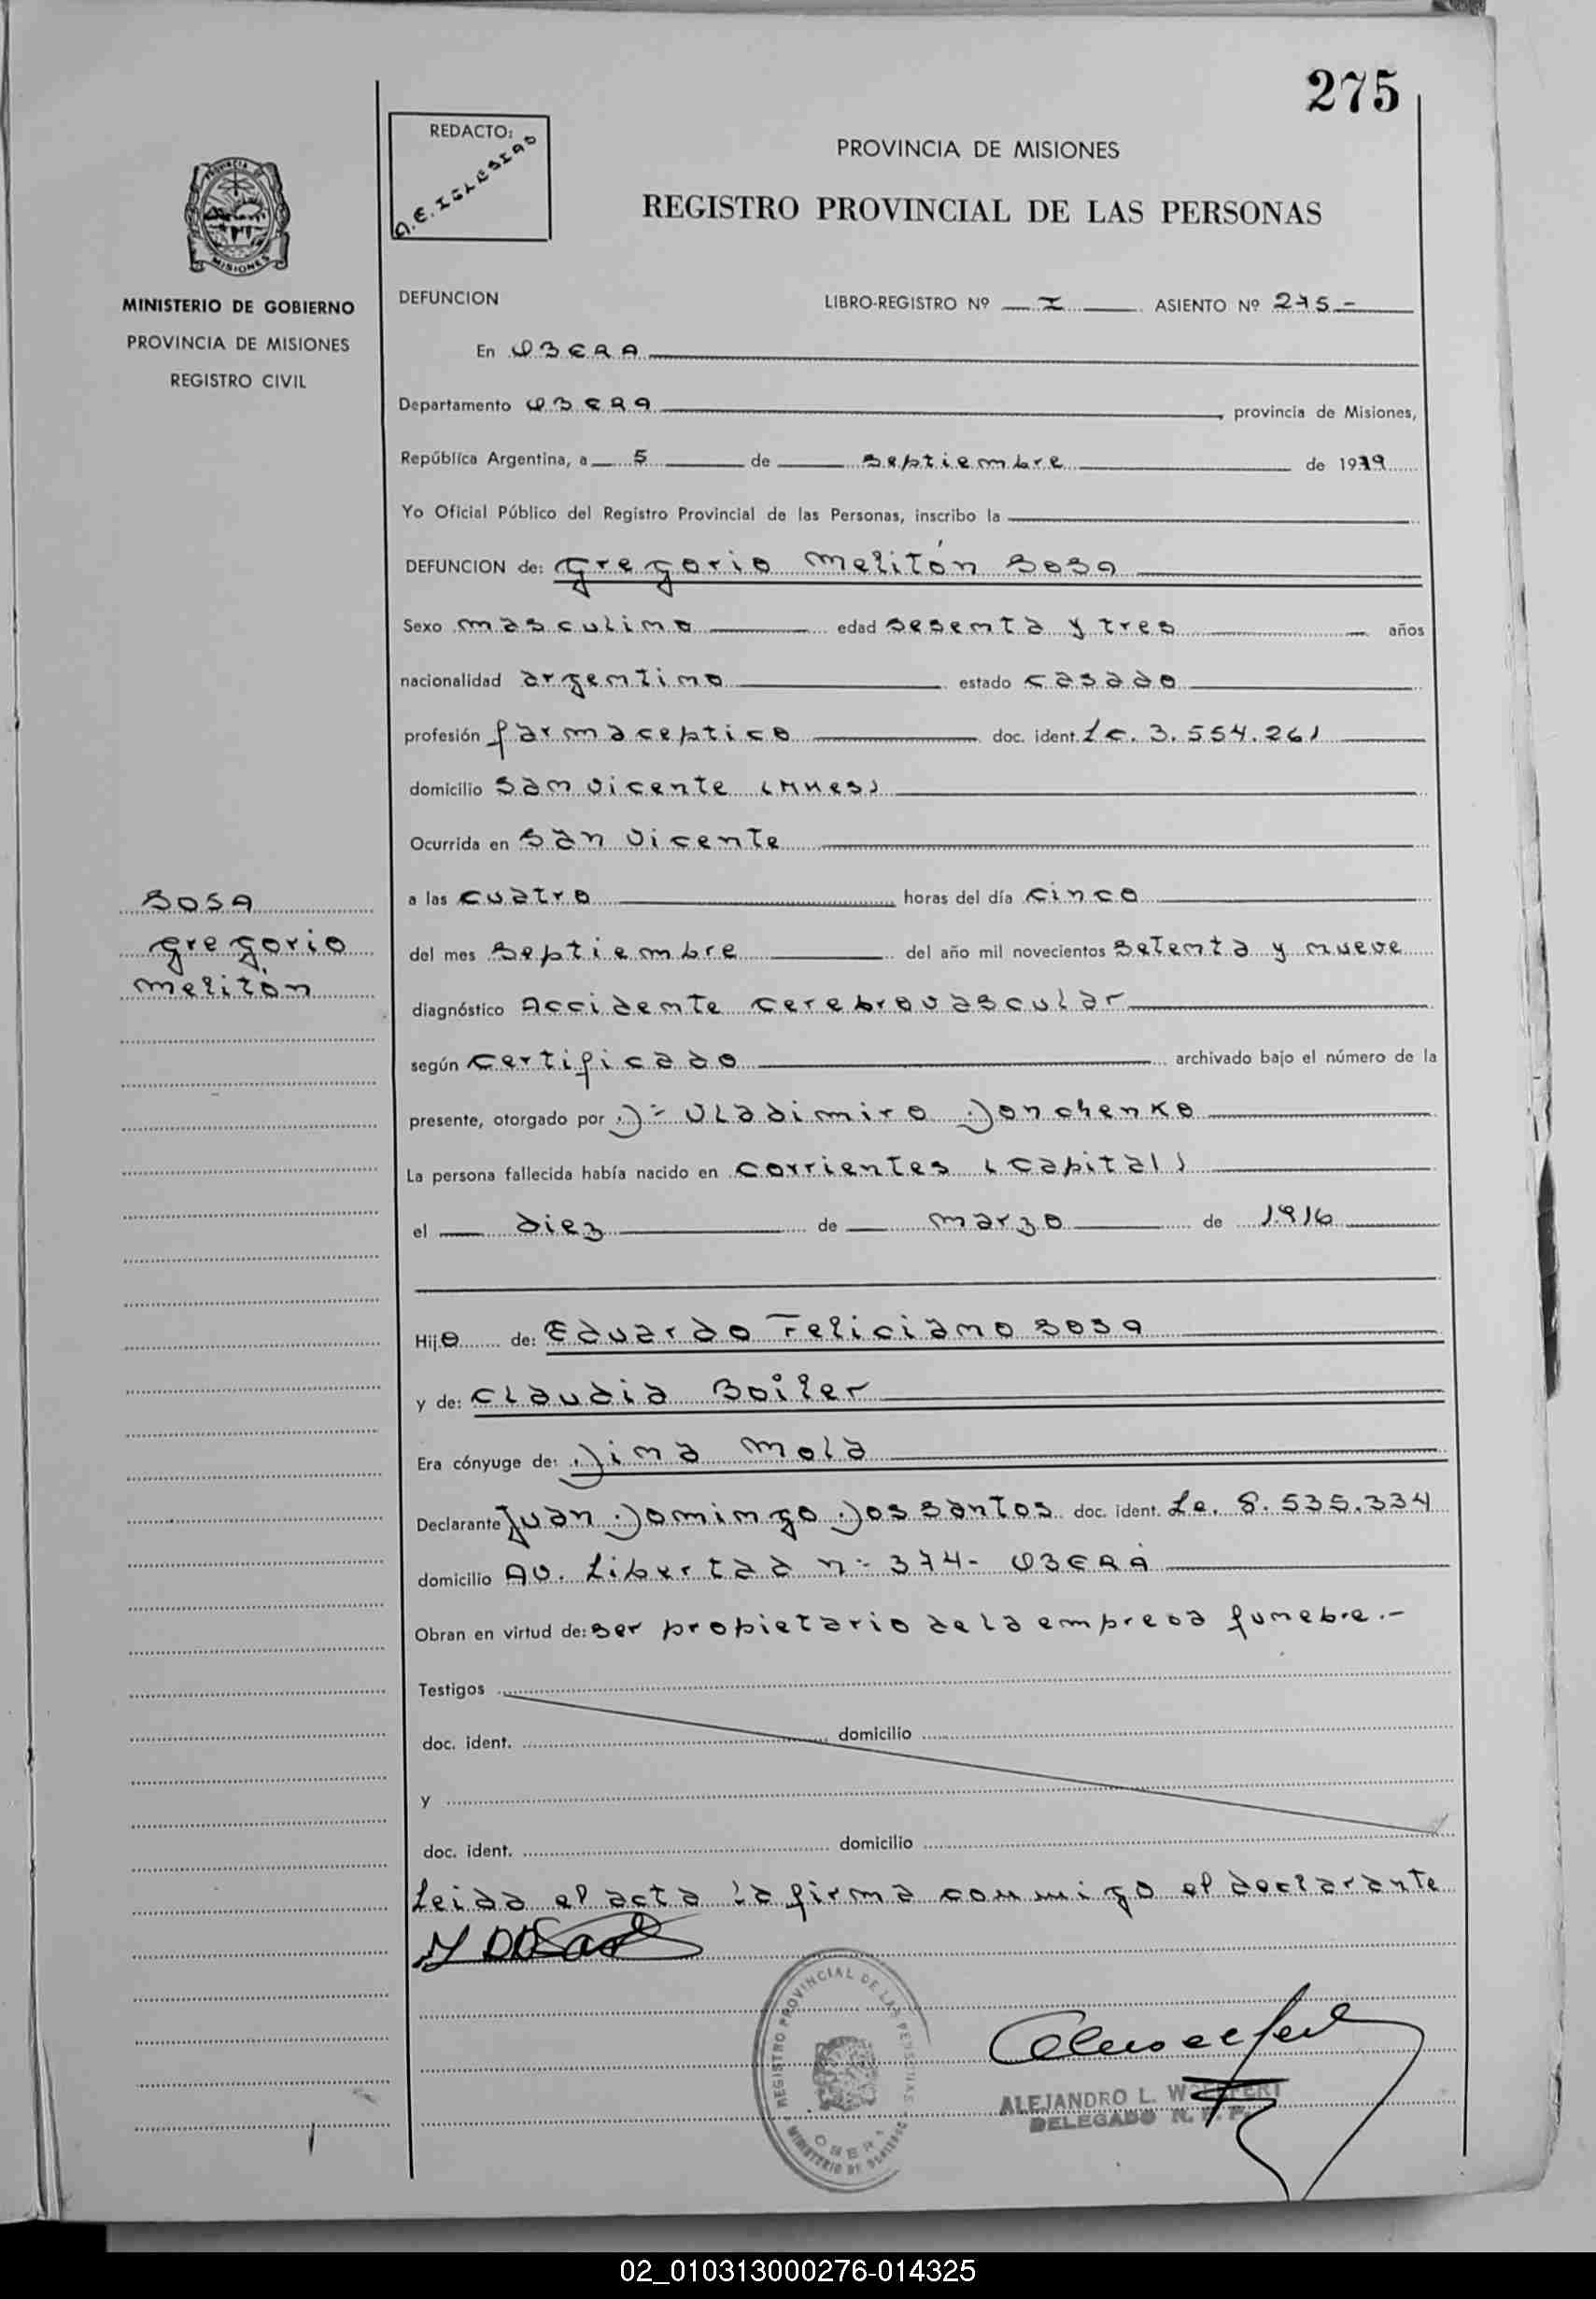 275
REDACTO:
A.E. IGLESIAS
PROVINCIA DE MISIONES
REGISTRO PROVINCIAL DE LAS PERSONAS
MISIONES
MINISTERIO DE GOBIERNO
PROVINCIA DE MISIONES
REGISTRO CIVIL
DEFUNCION LIBRO-REGISTRO Nº I ASIENTO Nº 275-
En OBERA
Departamento OBERA, provincia de Misiones,
República Argentina, a 5 de septiembre de 1979
Yo Oficial Público del Registro Provincial de las Personas, inscribo la
DEFUNCION de: Gregorio Melitón Sosa
Sexo masculino edad sesenta y tres años
nacionalidad argentino estado casado
profesión farmaceptico doc. ident. Le. 3.554.261
domicilio San Vicente (MNES)
Ocurrida en San Vicente
a las cuatro horas del día cinco
del mes septiembre del año mil novecientos setenta y nueve
diagnóstico Accidente cerebrovascular
según certificado archivado bajo el número de la
presente, otorgado por Dº Vladimiro Donchenko
La persona fallecida había nacido en Corrientes (capital)
el diez de marzo de 1916
Hijo de: Eduardo Feliciano Sosa
y de: Claudia Boiler
Era cónyuge de: Dina Mola
Declarante Juan Domingo Dos Santos doc. ident. Le. 8.535.334
domicilio Av. Libertad nº 374- OBERÁ
Obran en virtud de: ser propietario de la empresa funebre.-
Testigos
doc. ident. domicilio
y
doc. ident. domicilio
Leida el acta la firma conmigo el declarante
SOSA
Gregorio
Melitón
REGISTRO PROVINCIAL DE LAS PERSONAS
OBERA
MINISTERIO DE GOBIERNO
ALEJANDRO L. WOLFFERT
DELEGADO R. P. P.
02_010313000276-014325